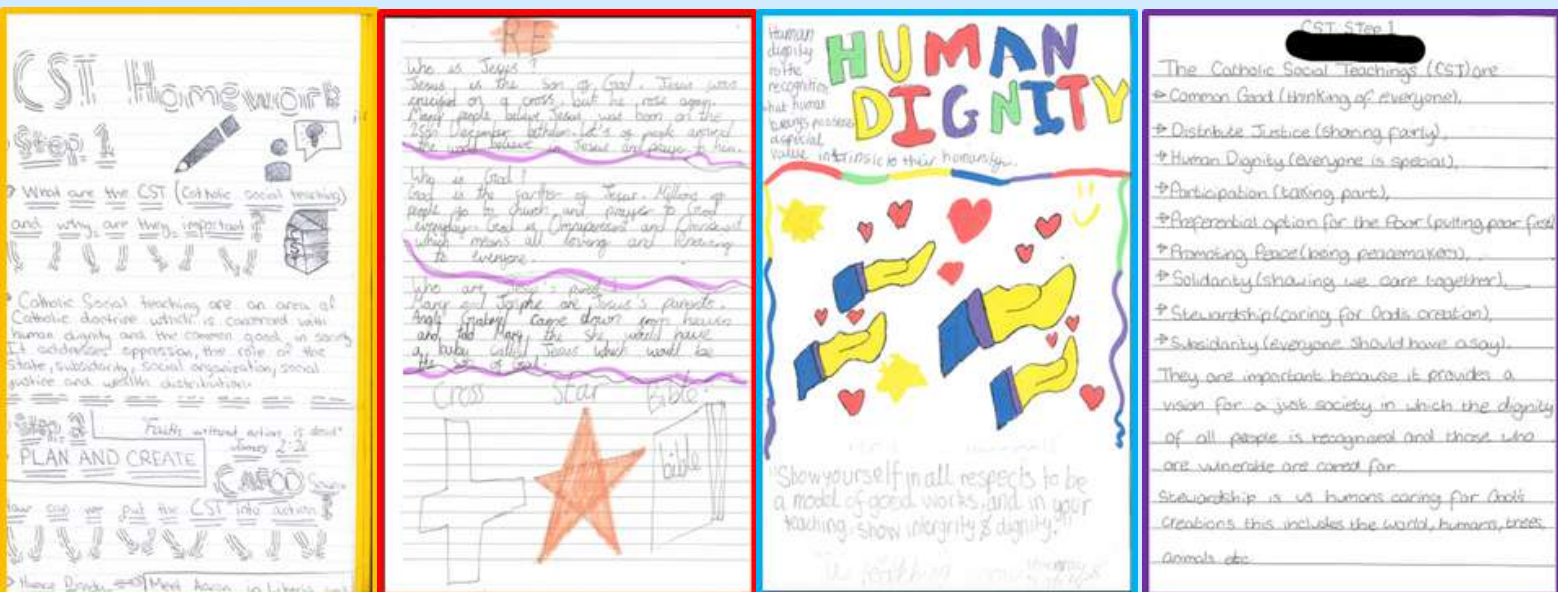 CST Homework
Step 1
What are the CST (Catholic social teaching)
and why are they important?
CST
Catholic Social teaching are an area of
Catholic doctrine which is concerned with
human dignity and the common good in society
It addresses oppression, the role of the
state, subsidarity, social organization, social
justice and wealth distribution.
Step 2
Faith without action is dead"
James 2:26
PLAN AND CREATE
CAFOD
How can we put the CST into action
Meet Aaron in Liberia
RE
Who is Jesus?
Jesus is the son of God. Jesus was
crucified on a cross, but he rose again.
Many people believe Jesus was born on the
25th December bethlen. Lot's of people around
the world believe in Jesus and praye to him.
Who is God?
God is the farther of Jesus. Millions of
people go to church and prayer to God
everyday. God is Omnipresent and
which means all loving and knowing
to everyone.
Who are Jesus's
Marry and Josphe are Jesus's parents.
Angle Grabriel came down from heaven
and told Mary the she would have
a baby called Jesus which would be
the son of God.
Cross Star Bible
bible
Human
dignity
is the
recognition
that human
beings possess
a special
value intrinsic to their humanity.
HUMAN
DIGNITY
"Show yourself in all respects to be
a model of good works, and in your
teaching, show intergrity & dignity."
CST: Step 1
The Catholic Social Teachings (CST) are
Common Good (thinking of everyone),
Distribute Justice (sharing fairly),
Human Dignity (everyone is special),
Participation (taking part),
Preferential option for the Poor (putting poor first)
Promoting Peace (being peacemakers),
Solidarity (showing we care together),
Stewardship (caring for God's creation),
Subsidarity (everyone should have a say).
They are important because it provides a
vision for a just society in which the dignity
of all people is recognised and those who
are vulnerable are cared for
Stewardship is us humans caring for God's
creations this includes the world, humans, trees,
animals etc